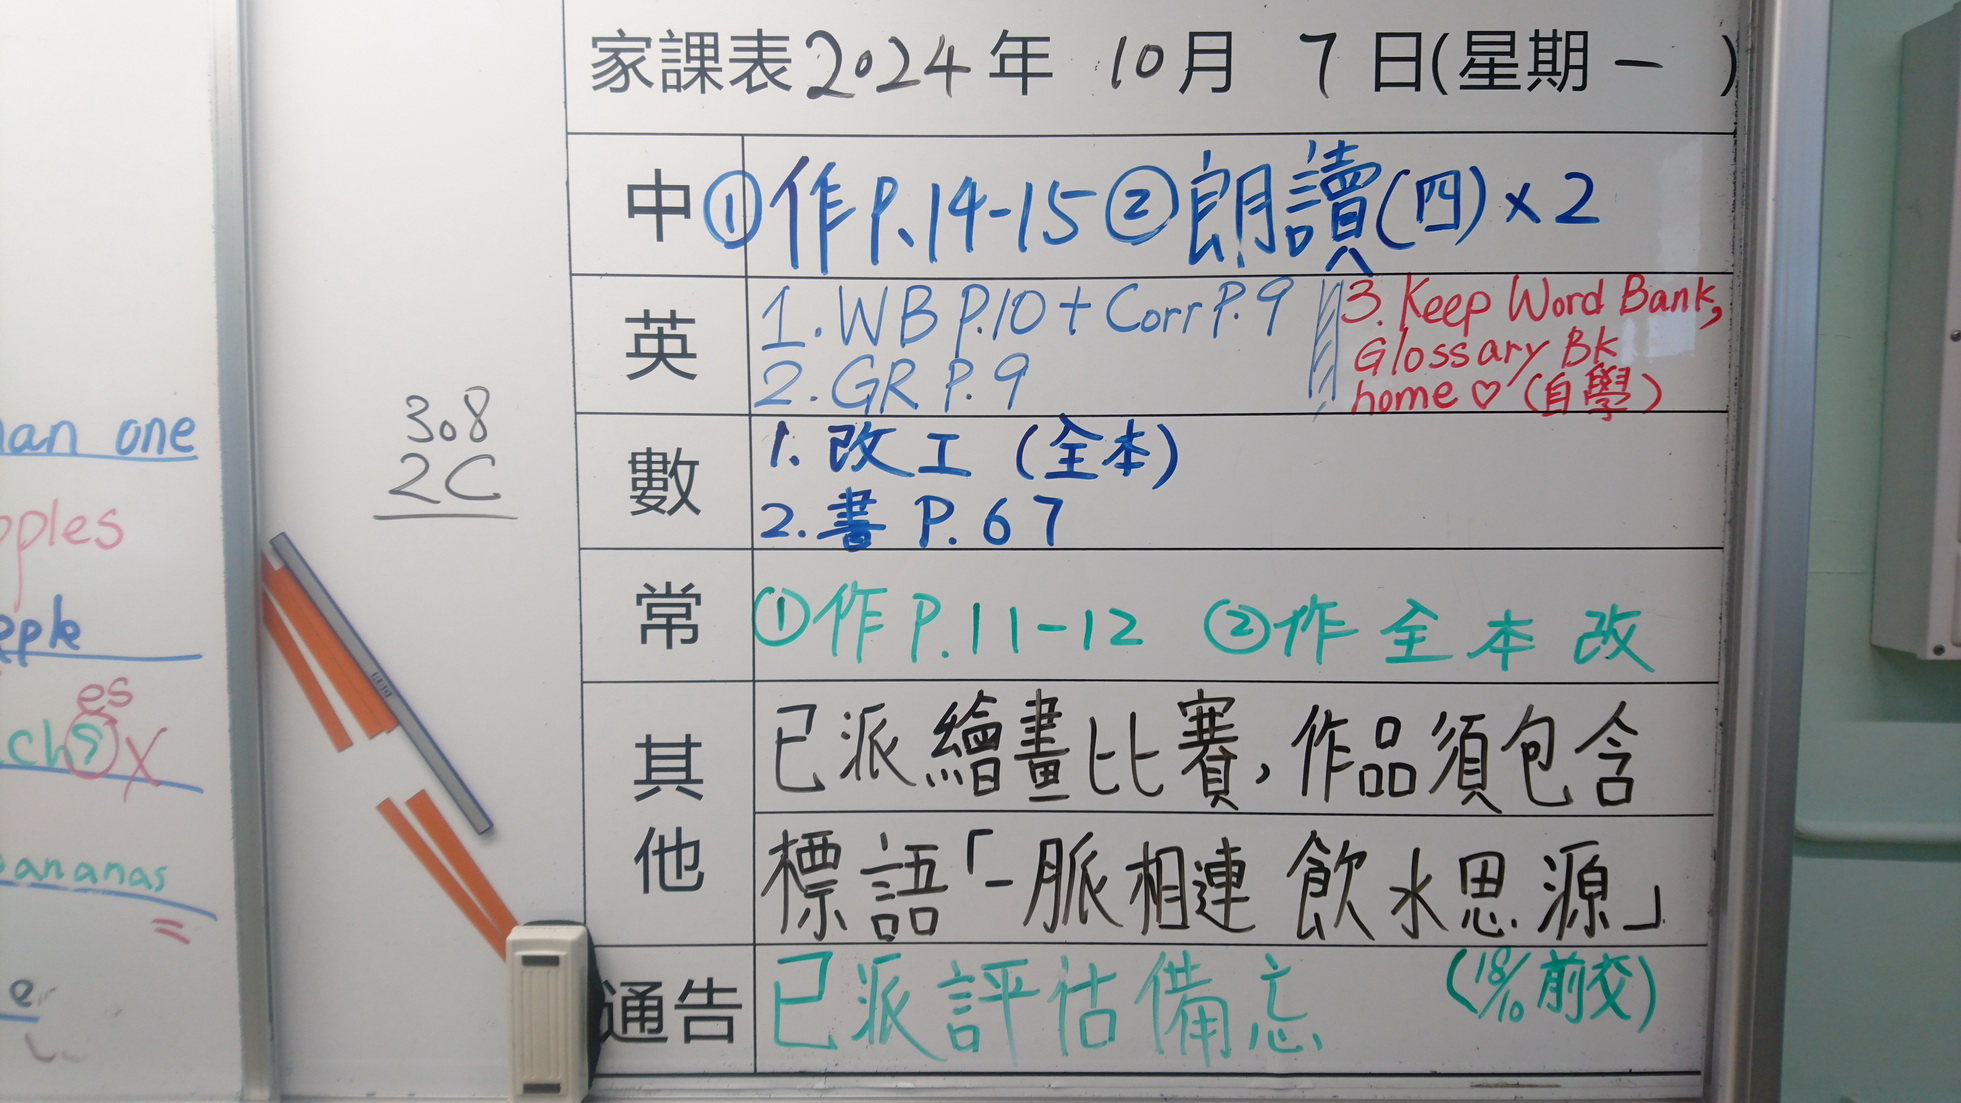 家課表2024年 10月 7日(星期一 )
中 ①作P.14-15 ②朗讀(四)×2
英 1.WB P.10 + Corr P.9
2.GR P.9
3. Keep Word Bank,
Glossary Bk
home♡(自學)
數 1. 改工(全本)
2. 書 P.67
常 ①作P.11-12 ②作全本改
其他 已派繪畫比賽,作品須包含
標語「一脈相連 飲水思源」
通告 已派評估備忘 (18/10前交)
308
2C
an one
pples
pple
es
ch s X
ananas
e